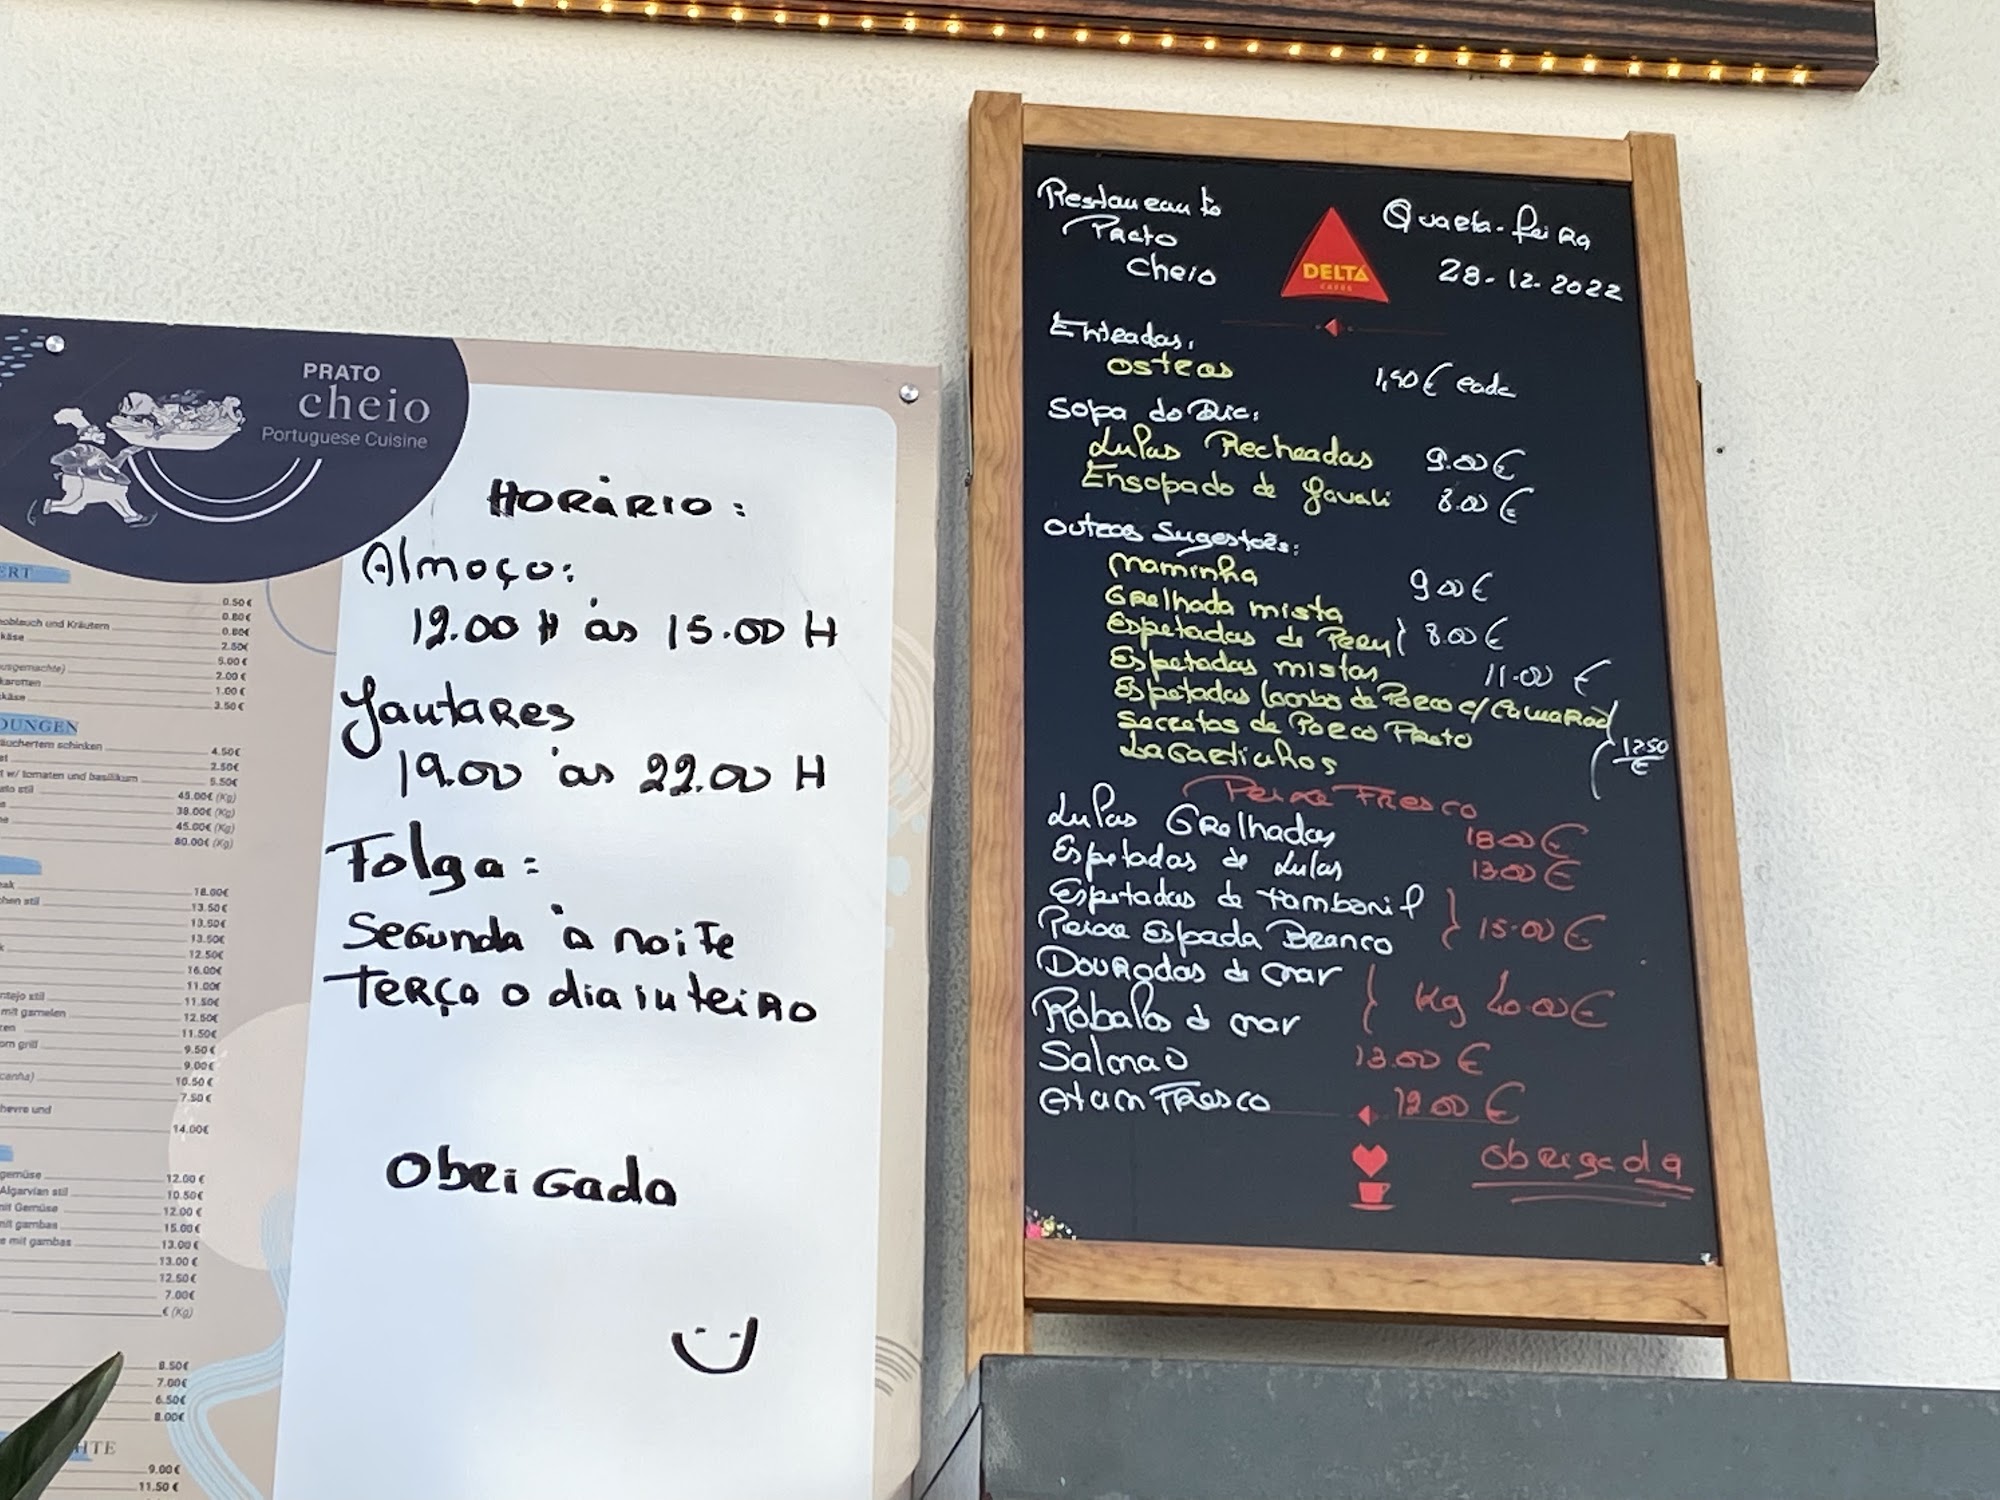 PRATO
cheio
Portuguese Cuisine
HORÁRIO:
Almoço:
12.00 H às 15.00 H
Jantares
19.00 às 22.00 H
Folga:
Segunda à noite
Terça o dia inteiro
Obrigada
ERT
0.50 €
noblauch und Kräutern 0.80 €
käse 0.80€
2.50€
ausgemachte) 5.00 €
karotten 2.00 €
käse 1.00 €
3.50 €
DUNGEN
äuchertem schinken 4.50€
2.50€
t w/ tomaten und basilikum 5.50€
ato stil 45.00€ (Kg)
38.00€ (Kg)
45.00€ (Kg)
80.00€ (Kg)
18.00€
chen stil 13.50€
13.50€
13.50€
12.50€
16.00€
11.00€
ntejo stil 11.50€
mit garnelen 12.50€
11.50€
om grill 9.50 €
9.00€
canha) 10.50 €
7.50 €
hevre und
14.00€
gemüse 12.00 €
Algarvian stil 10.50€
mit Gemüse 12.00 €
mit gambas 15.00€
e mit gambas 13.00 €
13.00 €
12.50€
7.00€
€ (Kg)
8.50€
7.00€
6.50€
8.00€
HTE
9.00€
11.50 €
Restaurante
Prato
Cheio
DELTA
CAFÉS
Quarta-feira
28-12-2022
Entradas,
Ostras 1,90€ cada
Sopa do Dia:
Lulas Recheadas 9.00€
Ensopado de Javali 8.00€
Outras Sugestoẽs:
Maminha 9.00€
Grelhada mista
Espetadas de Peru } 8.00€
Espetadas mistas 11.00 €
Espetadas lombo de Porco c/ Camarao
Secretos de Porco Preto 12.50
€
Lagartinhos
Peixe Fresco
Lulas Grelhadas 18.00€
Espetadas de Lulas 13.00€
Espetadas de tamboril
Peixe Espada Branco } 15.00€
Douradas de mar
Robalos d mar } Kg 40.00€
Salmao 13.00 €
Atum Fresco 12.00 €
Obrigada